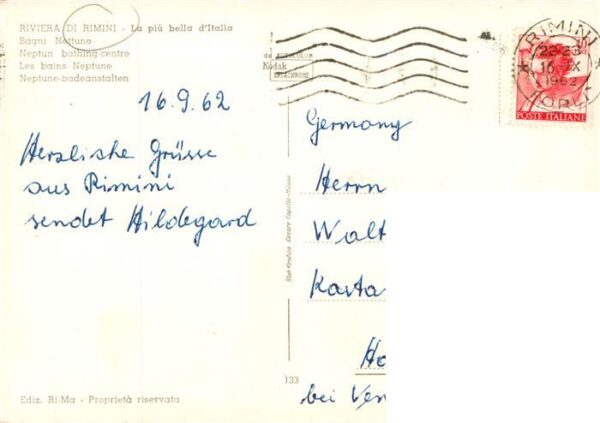 RIVIERA DI RIMINI - La più bella d'Italia
Bagni Nettuno
Neptun bathing-centre
Les bains Neptune
Neptune-badeanstalten
16.9.62
Herzliche Grüsse
aus Rimini
sendet Hildegard
Kodak
RIMINI
22-23
16-IX
1962
POSTE ITALIANE
Germany
Herrn
Walt
Karta
Ho
bei Ven
133
Ediz. Ri-Ma - Proprietà riservata